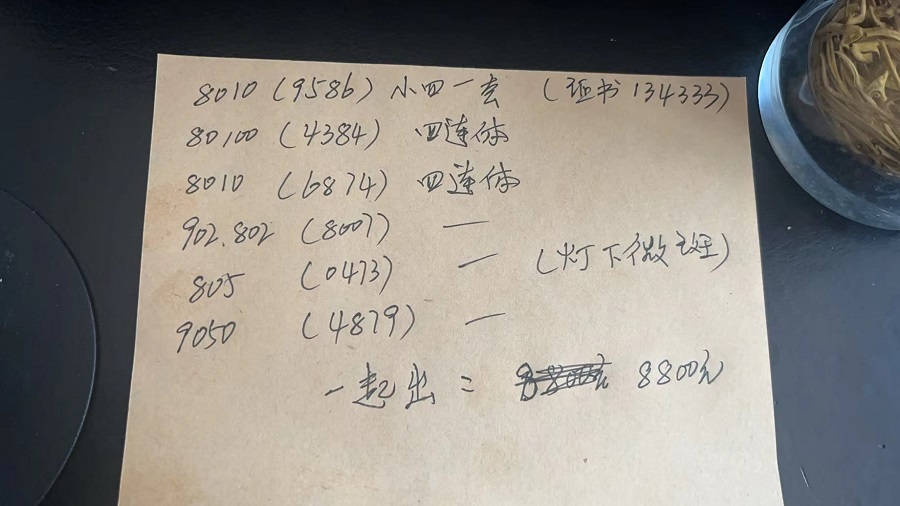 8010 (9586) 小四一套 (证书134333)
80100 (4384) 四连体
8010 (6874) 四连体
902.802 (8007) 一
805 (0473) 一 (灯下微斑)
9050 (4879) 一
一起出: 8800元